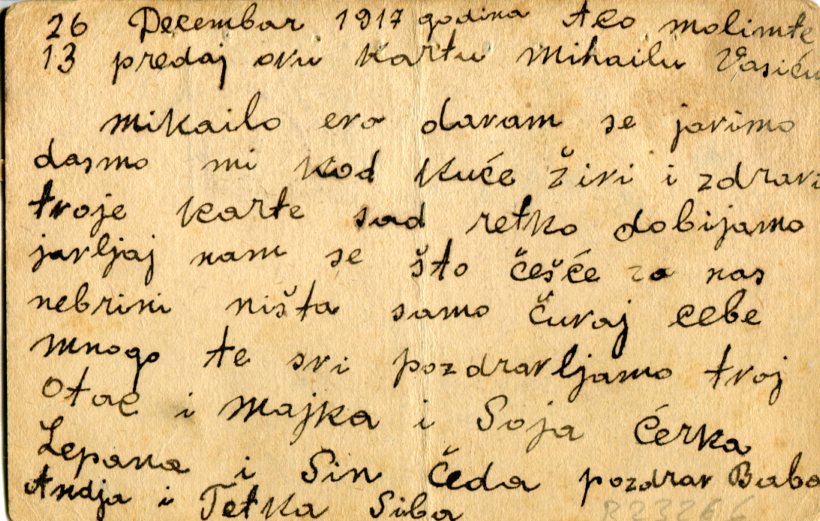 26 Decembar 1917 godina Aco molimte
13 predaj ovu kartu Mihailu Vasiću
Mikailo evo davam se javimo
dasmo mi kod kuće živi i zdravi
tvoje karte sad retko dobijamo
javljaj nam se što češće za nas
nebrini ništa samo čuvaj cebe
mnogo te svi pozdravljamo tvoj
Otac i Majka i Soja Ćerka
Lepava i Sin Čeda pozdrav Baba
Andja i Tetka Siba
R23266